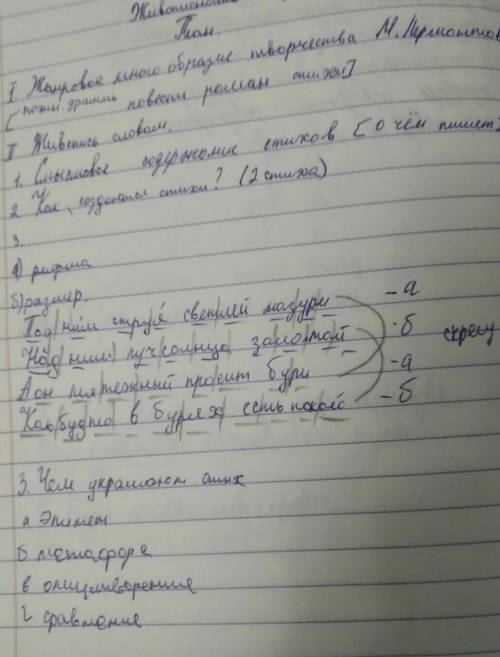 Живописной
План.
I. Жанровое много образие творчества М. Лермонтов
[поэмы. драммы повести роман стихи]
II Живопись словом.
1. Смысловое содержание стихов [о чём пишет
2 Как создаются стихи? (2 стиха)
3.
а) рифма
б) размер.
Под ним струя светлей лазури - а
Над ним луч солнца золотой - б
А он мятежный просит бури - а
Как будто в бурях есть покой - б
3. Чем украшают стих
а Эпитет
б метафора
в олицетворение
г сравнение